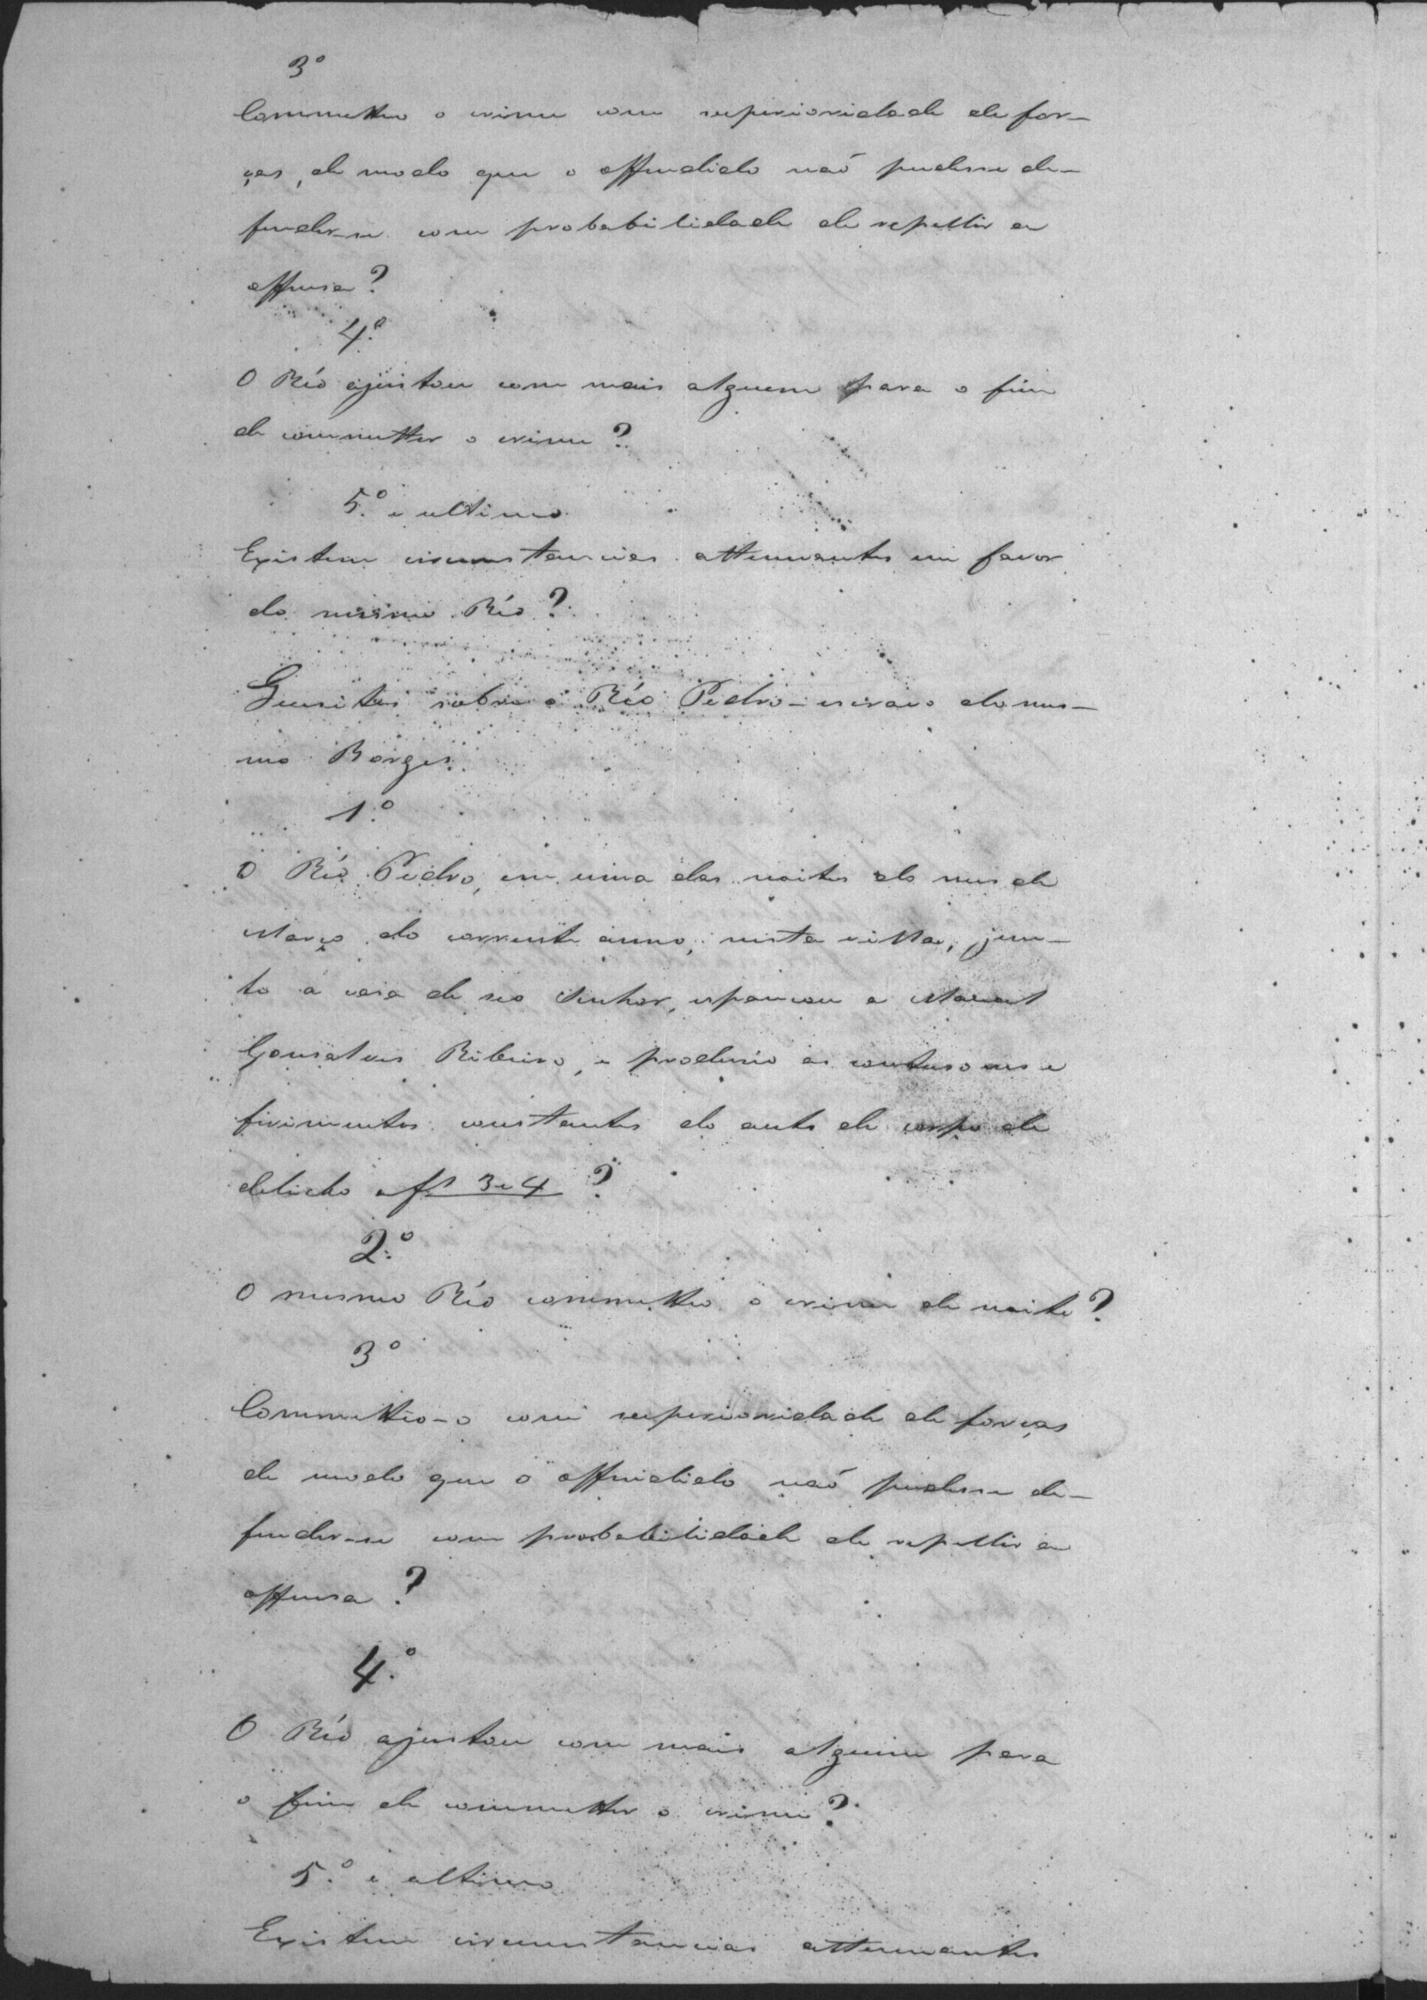 3º
Commetteo o crime com superioridade de for-
ças, de modo que o offendido naó pudesse de-
fender-se com probabilidade de repellir a
offensa?
4.º
O Réo ajustou com mais alguem para o fim
de commetter o crime?
5.º e ultimo
Existem circunstancias attenuantes em favor
do mesmo Réo?
Quesitos sobre o Réo Pedro-escravo do mes-
mo Borges.
1.º
O Réo Pedro, em uma das noites do mes de
Março do corrente anno, nesta villa, jun-
to á casa de seo Senhor, espancou a Manoel
Gonsalves Ribeiro, e produsio as contusoens e
ferimentos constantes do auto de corpo de
delicto a fs 3 e 4?
2.º
O mesmo Réo commetteo o crime de noite?
3º
Commetteo-o com superioridade de forças
de modo que o offendido naó pudesse de-
fender-se com probabilidade de repellir a
offensa?
4.º
O Réo ajustou com mais alguem para
o fim de commetter o crime?
5.º e ultimo
Existem circunstancias attenuantes